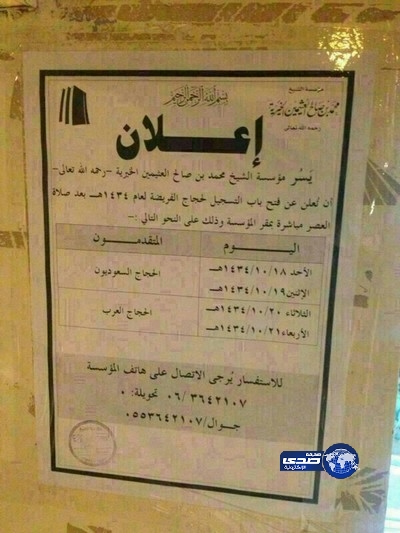 بسم الله الرحمن الرحيم
مؤسسة الشيخ
محمد بن صالح العثيمين الخيرية
رحمه الله تعالى
إعلان
يَسُر مؤسسة الشيخ محمد بن صالح العثيمين الخيرية -رحمه الله تعالى-
أن تُعلن عن فتح باب التسجيل لحجاج الفريضة لعام ١٤٣٤هـ بعد صلاة
العصر مباشرة بمقر المؤسسة وذلك على النحو التالي :-
اليوم المتقدمون
الأحد ١٤٣٤/١٠/١٨هـ
الإثنين ١٤٣٤/١٠/١٩هـ
الحجاج السعوديون
الثلاثاء ١٤٣٤/١٠/٢٠هـ
الأربعاء ١٤٣٤/١٠/٢١هـ
الحجاج العرب
للاستفسار يُرجى الاتصال على هاتف المؤسسة
٠٦/٣٦٤٢١٠٧ تحويلة: ٠
جوال/٠٥٥٣٦٤٢١٠٧
صحيفة
صدى
الإلكترونية